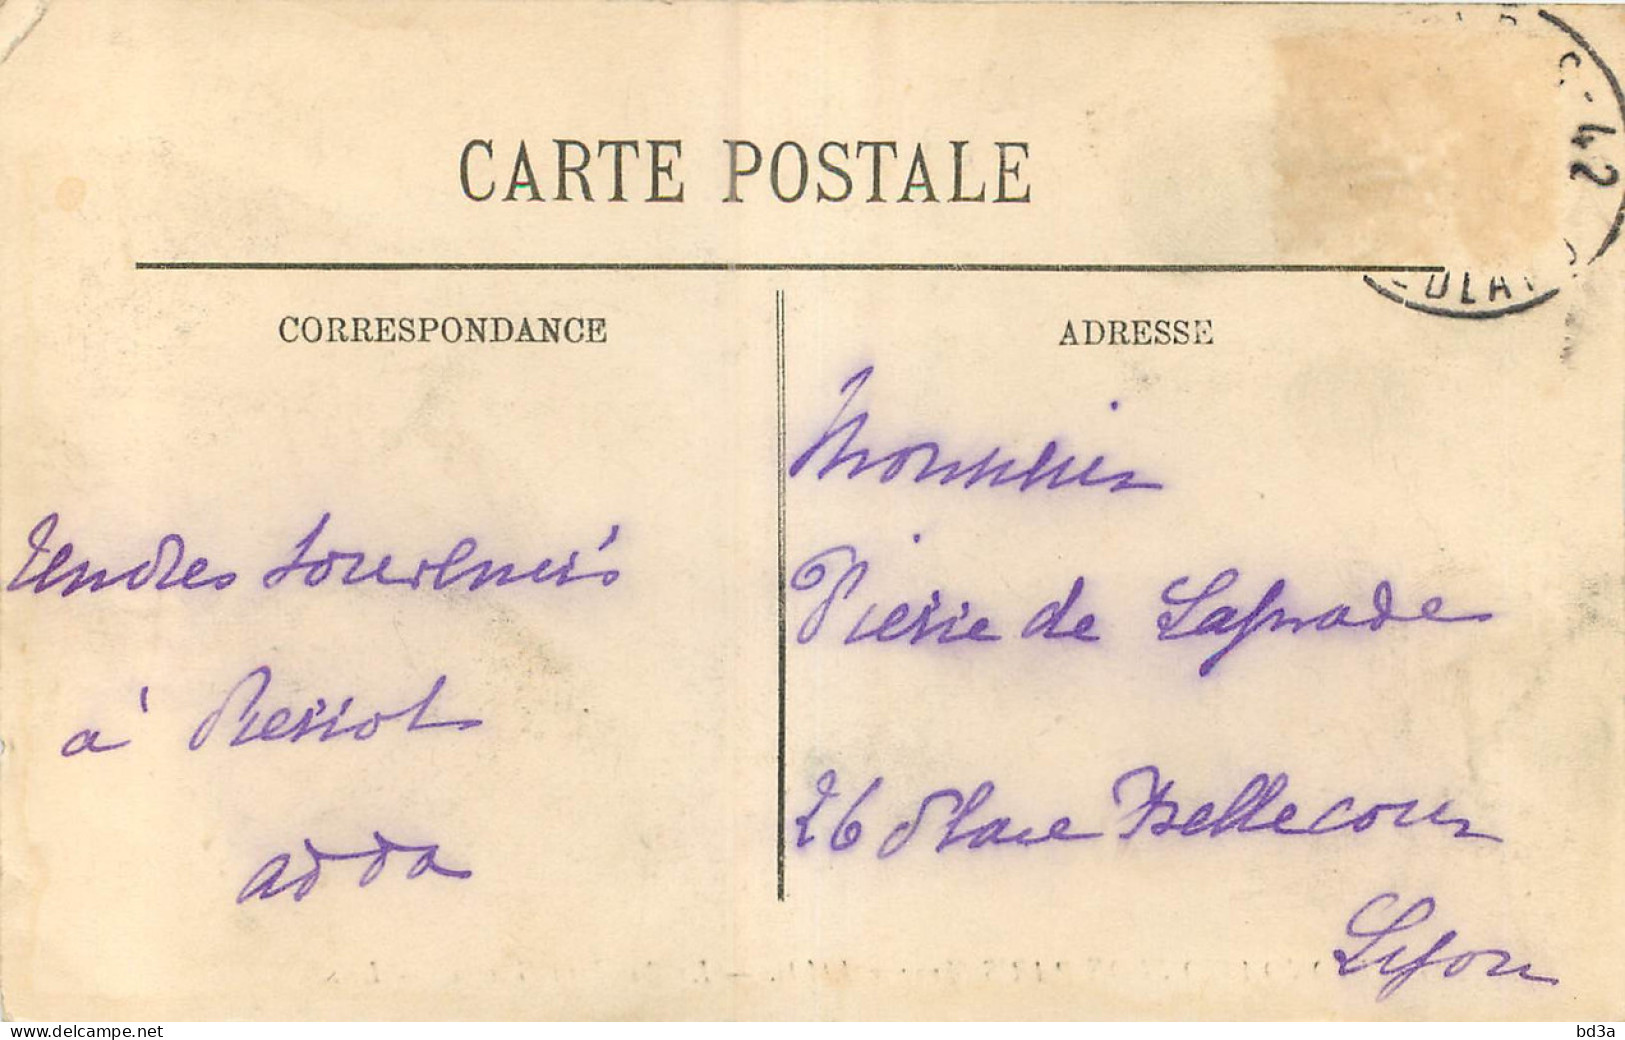 CARTE POSTALE
CORRESPONDANCE
ADRESSE
Tendres souvenirs
à Pierrot
adda
Monsieur
Pierre de Laprade
26 Place Bellecour
Lyon
-42
www.delcampe.net
bd3a